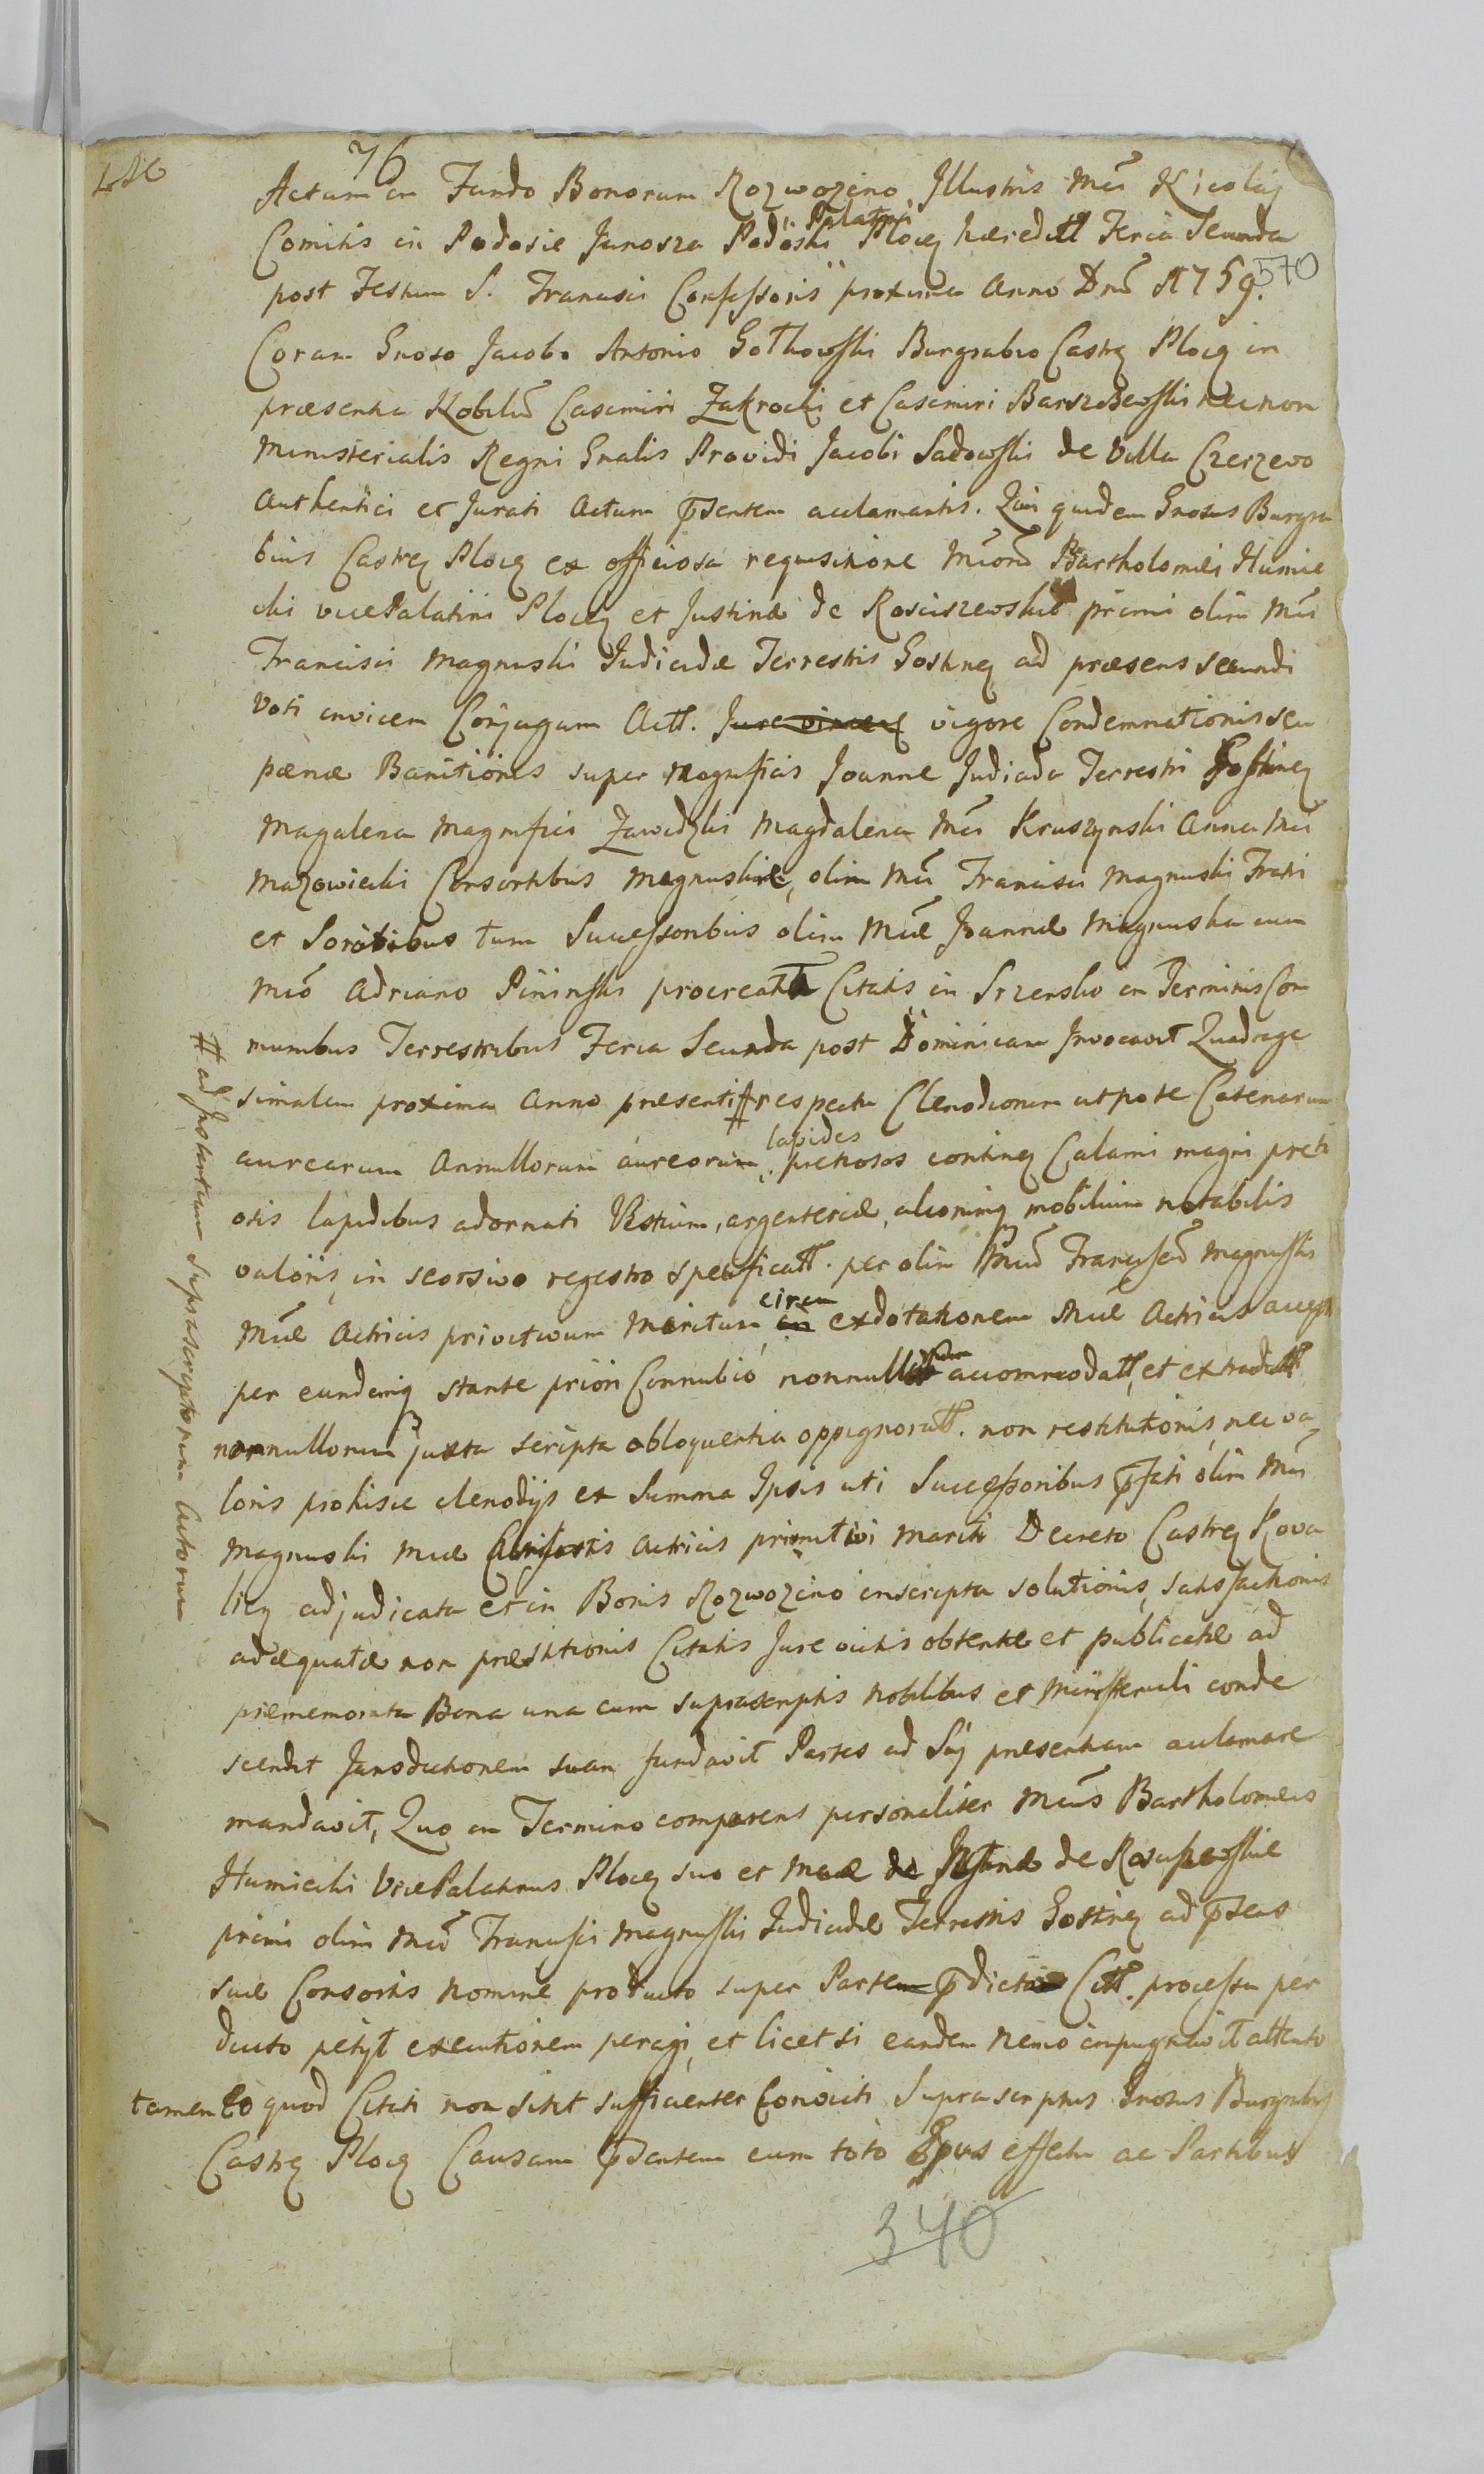 76
Actum in Fundo Bonorum Rozwozino Illustris Mci Nicolaj
Comitis in Podosie Junosza Podoski Palatini Plocq hæreditt Feria Secunda
570
post Festum S. Francisci Confessoris proxima Anno Dni 1759.
Coram Gnoso Jacobo Antonio Gotkowski Burgrabio Castrq Plocq in
præsentia Nobiliũ Casimiri Zakrocki et Casimiri Barszczewski necnon
Ministerialis Regni Gnalis Providi Jacobi Sadowski de Villa Czerzewo
Authentici et Jurati Actum pñsentem acclamantis. Qui quidem Gnosus Burgra
bius Castrq Plocq ex officiosa requisitione Mcorũ Bartholomei Humie
cki vicePalatini Plocq et Justinæ de Rosciszewskie primi olim Mci
Francisci Magnuski Judicidæ Terrestris Gostnq ad præsens secundi
Voti invicem Conjugum Actt. vigore Condemnationis seu
pænæ Banitionis super Magnificis Joanne Judicida Terrestri Gostinq
Magalena Magnifici Zawidzki Magdalena Mci Kruszynski Anna Mci
Mazowiecki Consortibus Magnuskie, olim Mci Francisci Magnuski Fratri
et Sororibus tum Successoribus olim Mcæ Joannæ Magnuska cum
Mco Adriano Pininski procreatt Citatis in Srzensko in Terminis Com
munibus Terrestribus Feria Secunda post Dominicam Invocavit Quadrage
simalem proxima Anno præsenti # respectu Clenodiorum utpote Catenarum
aurearum Annullorum aureorum lapides pretiosos continq Calami magni preti
osis lapidibus adornati Vestium, argenteriæ, aliorumq mobilium notabilis
valoris, in seorsivo regestro specificatt. per olim Mcũ Franciscũ Magnuski
Mcæ Actricis primitivum Maritum circa exdotationem Mcæ Actricis accept
per eundemq stante priori Connubio nonnullorum accommodatt, et extraditt
nonnullorum juxta scripta obloquentia oppignoratt. non restitutionis, nec va
loris prohisce clenodijs ex Summa Ipsis uti Successoribus pfati olim Mci
Magnuski Mcæ Actricis primitivi mariti Decreto Castrq Kova
lieq adjudicata et in Bonis Rozwozino inscripta solutionis, satisfactionis
adæquatæ non præstitionis Citatis Jure victis obtentæ et publicatæ ad
præmemorata Bona una cum suprascriptis Nobilibus et Ministeriali conde
scendit Jurisdictionem suam fundavit Partes ad Sui præsentiam acclamare
mandavit, Quo in Termino comparens personaliter Mcus Bartholomeus
Humiecki VicePalatinus Plocq suo et Mcæ Justinæ de Rosciszewskie
primi olim Mci Francisci Magnuski Judicidæ Terrestris Gostinq ad pñsens
suæ Consortis Nomine producto super Parte pdicta Citt. processu per
ducto petijt executionem peragi, et licet si eandem nemo impugnavit attento
tamen Eo quod Citati non sint sufficienter Convicti Suprascriptus Gnosus Burgrabius
Castrq Plocq Causam pñsentem cum toto Ipsius effectu ac Partibus
# ad Instantiam suprascriptorum Actorum
340